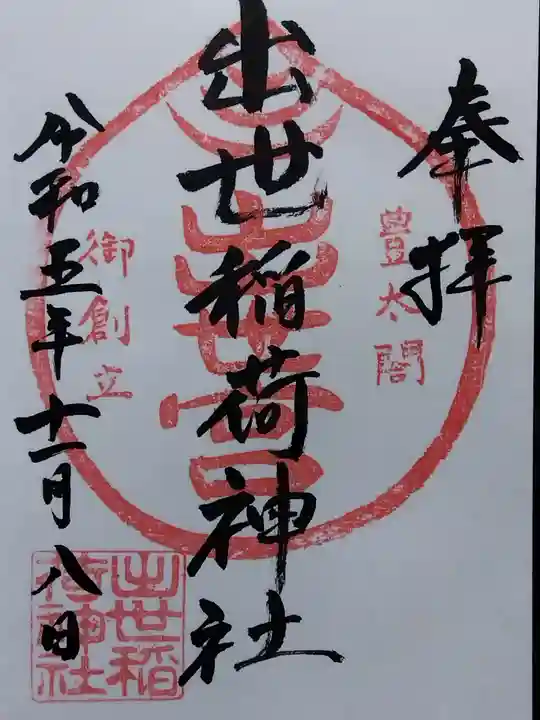 奉拝
豊太閤
出世稲荷神社
御創立
令和五年十一月八日
出世稲
荷神社